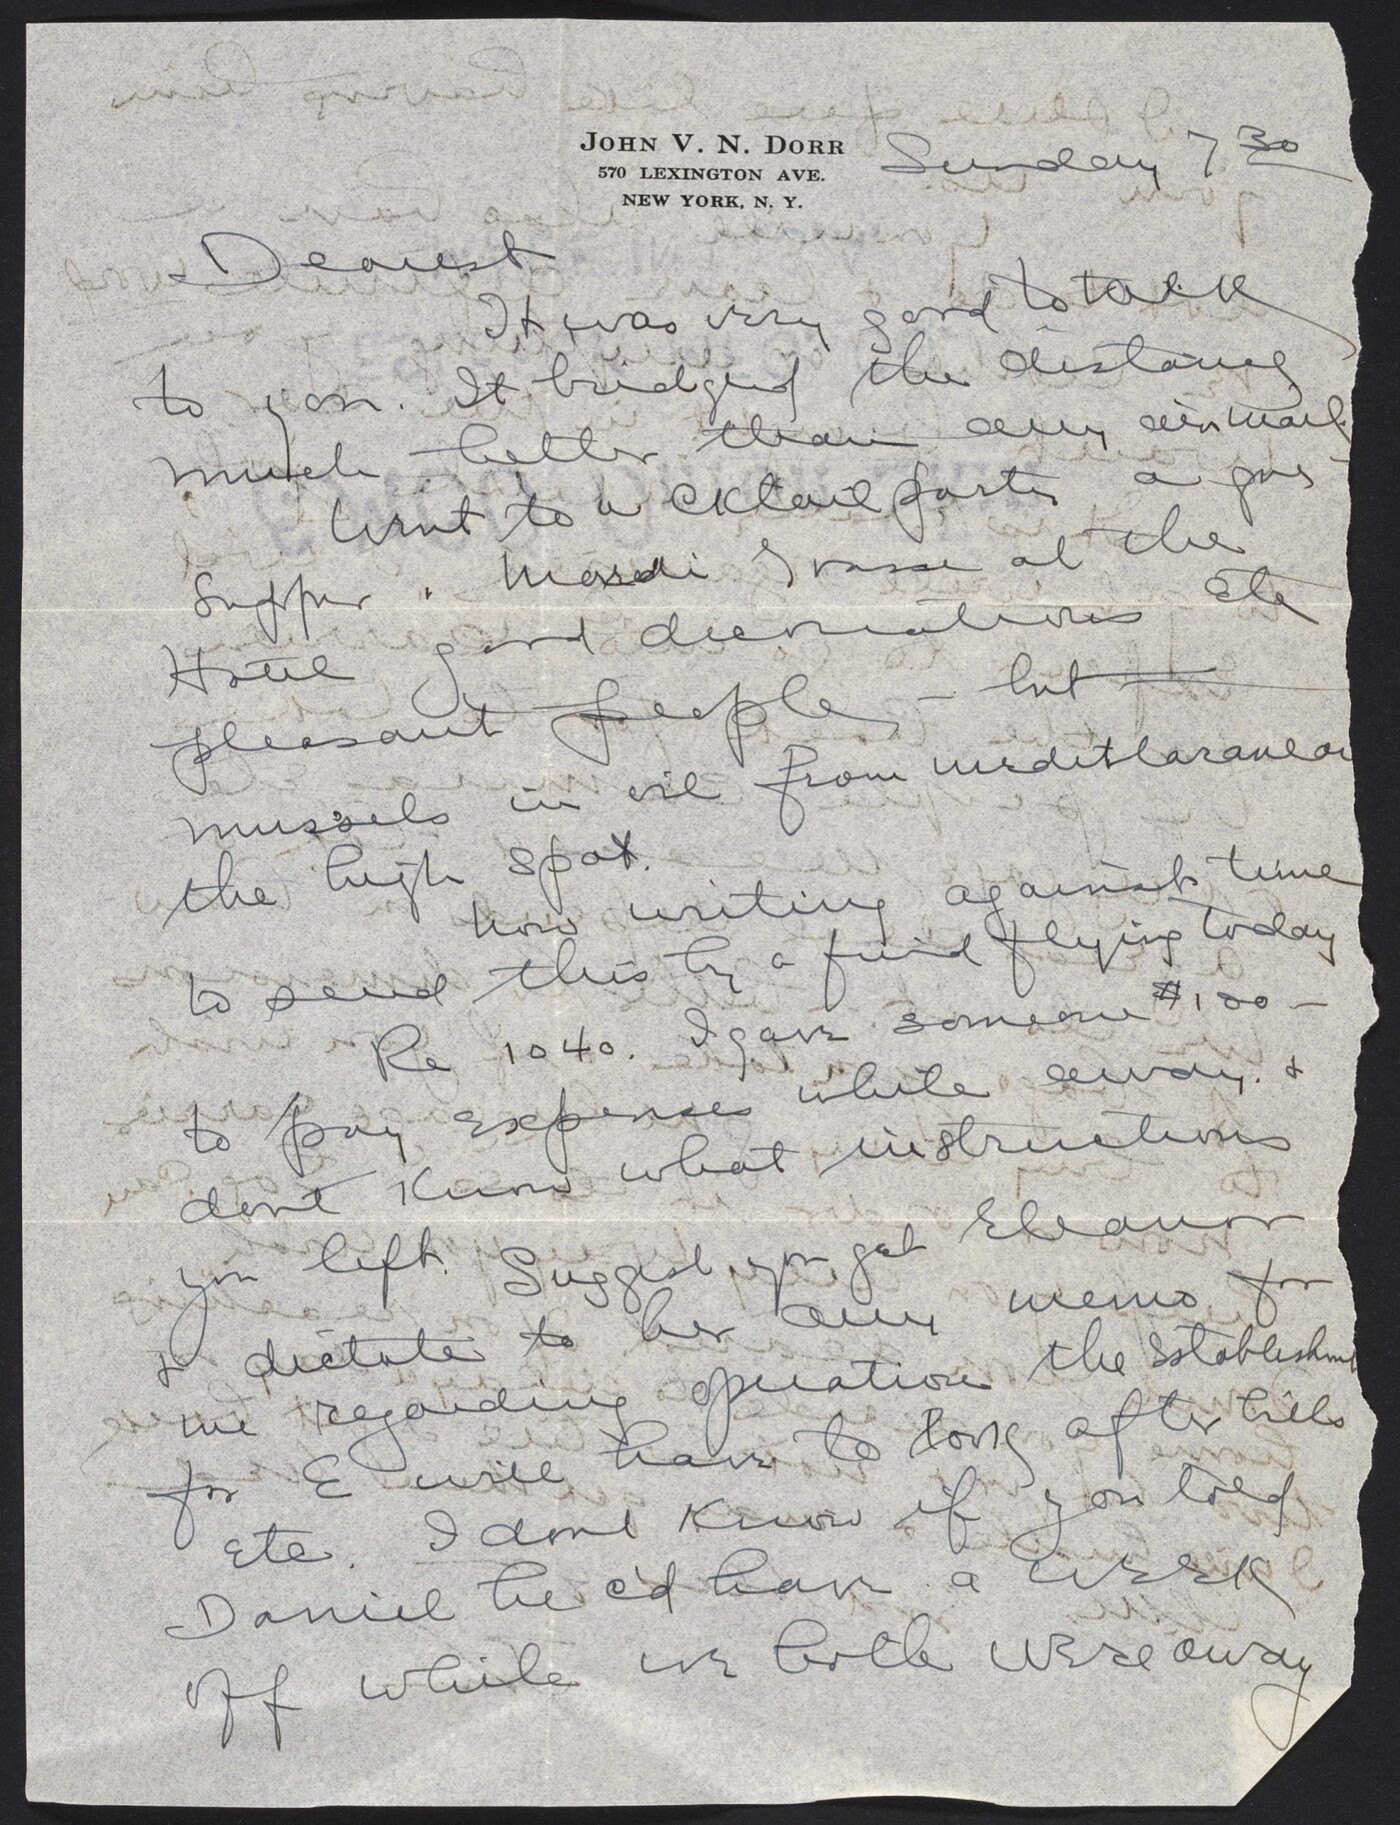 JOHN V. N. DORR
570 LEXINGTON AVE.
NEW YORK, N. Y.
Sunday 7 30
Dearest
It was very good to talk
to you. It bridged the distance
much better than any air mail
Went to a cktail party a
Supper. Mardi Grasse at the
Hotel good decorations Etc
pleasant people, - but
mussels in oil from meditaranean
the high spot.
Now writing against time
to send this by a friend flying today
Re 1040. I gave someone $100 -
to pay expenses while away. &
dont know what instructions
you left. Suggest you get Eleanor
& dictate to her any memo for
me regarding operation the Establishment
for E will have to long after bills
Etc. I dont know if you told
Daniel he c'd have a week
off while we both were away